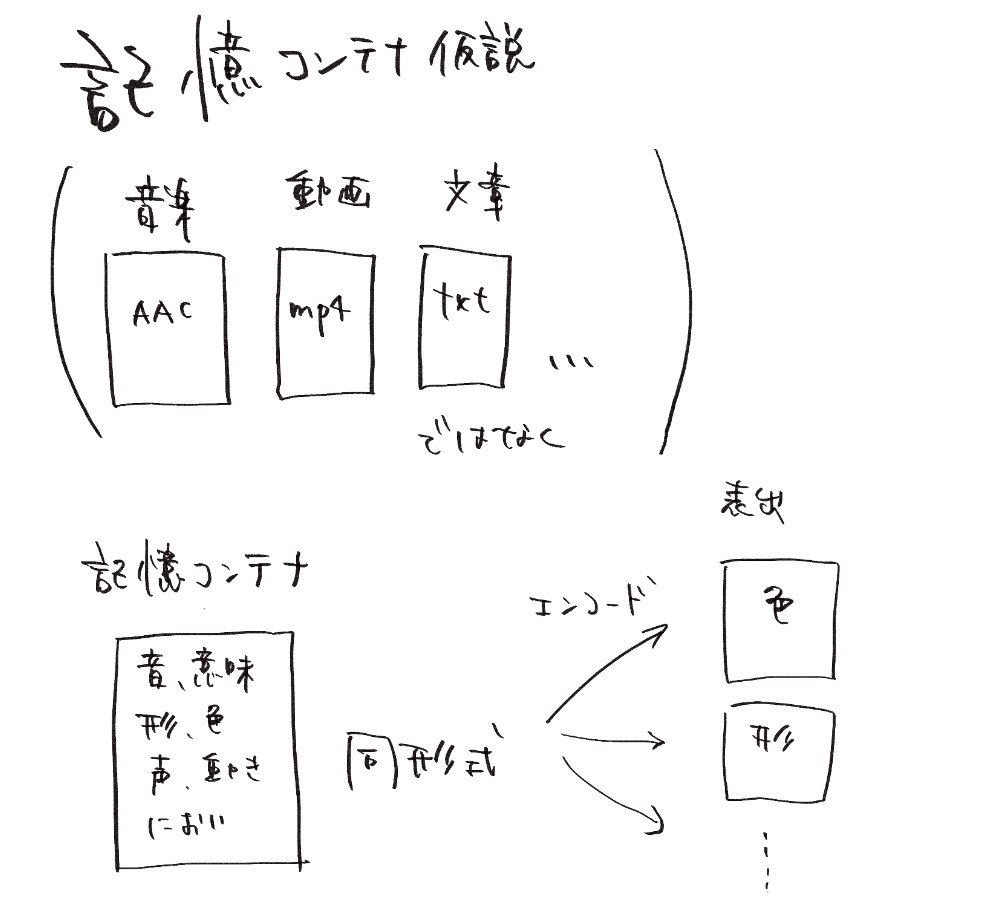 記憶コンテナ仮説
音楽 動画 文章
AAC mp4 txt …
ではなく
表出
記憶コンテナ
エンコード
色
音、意味
形、色
声、動き
におい
同形式
形